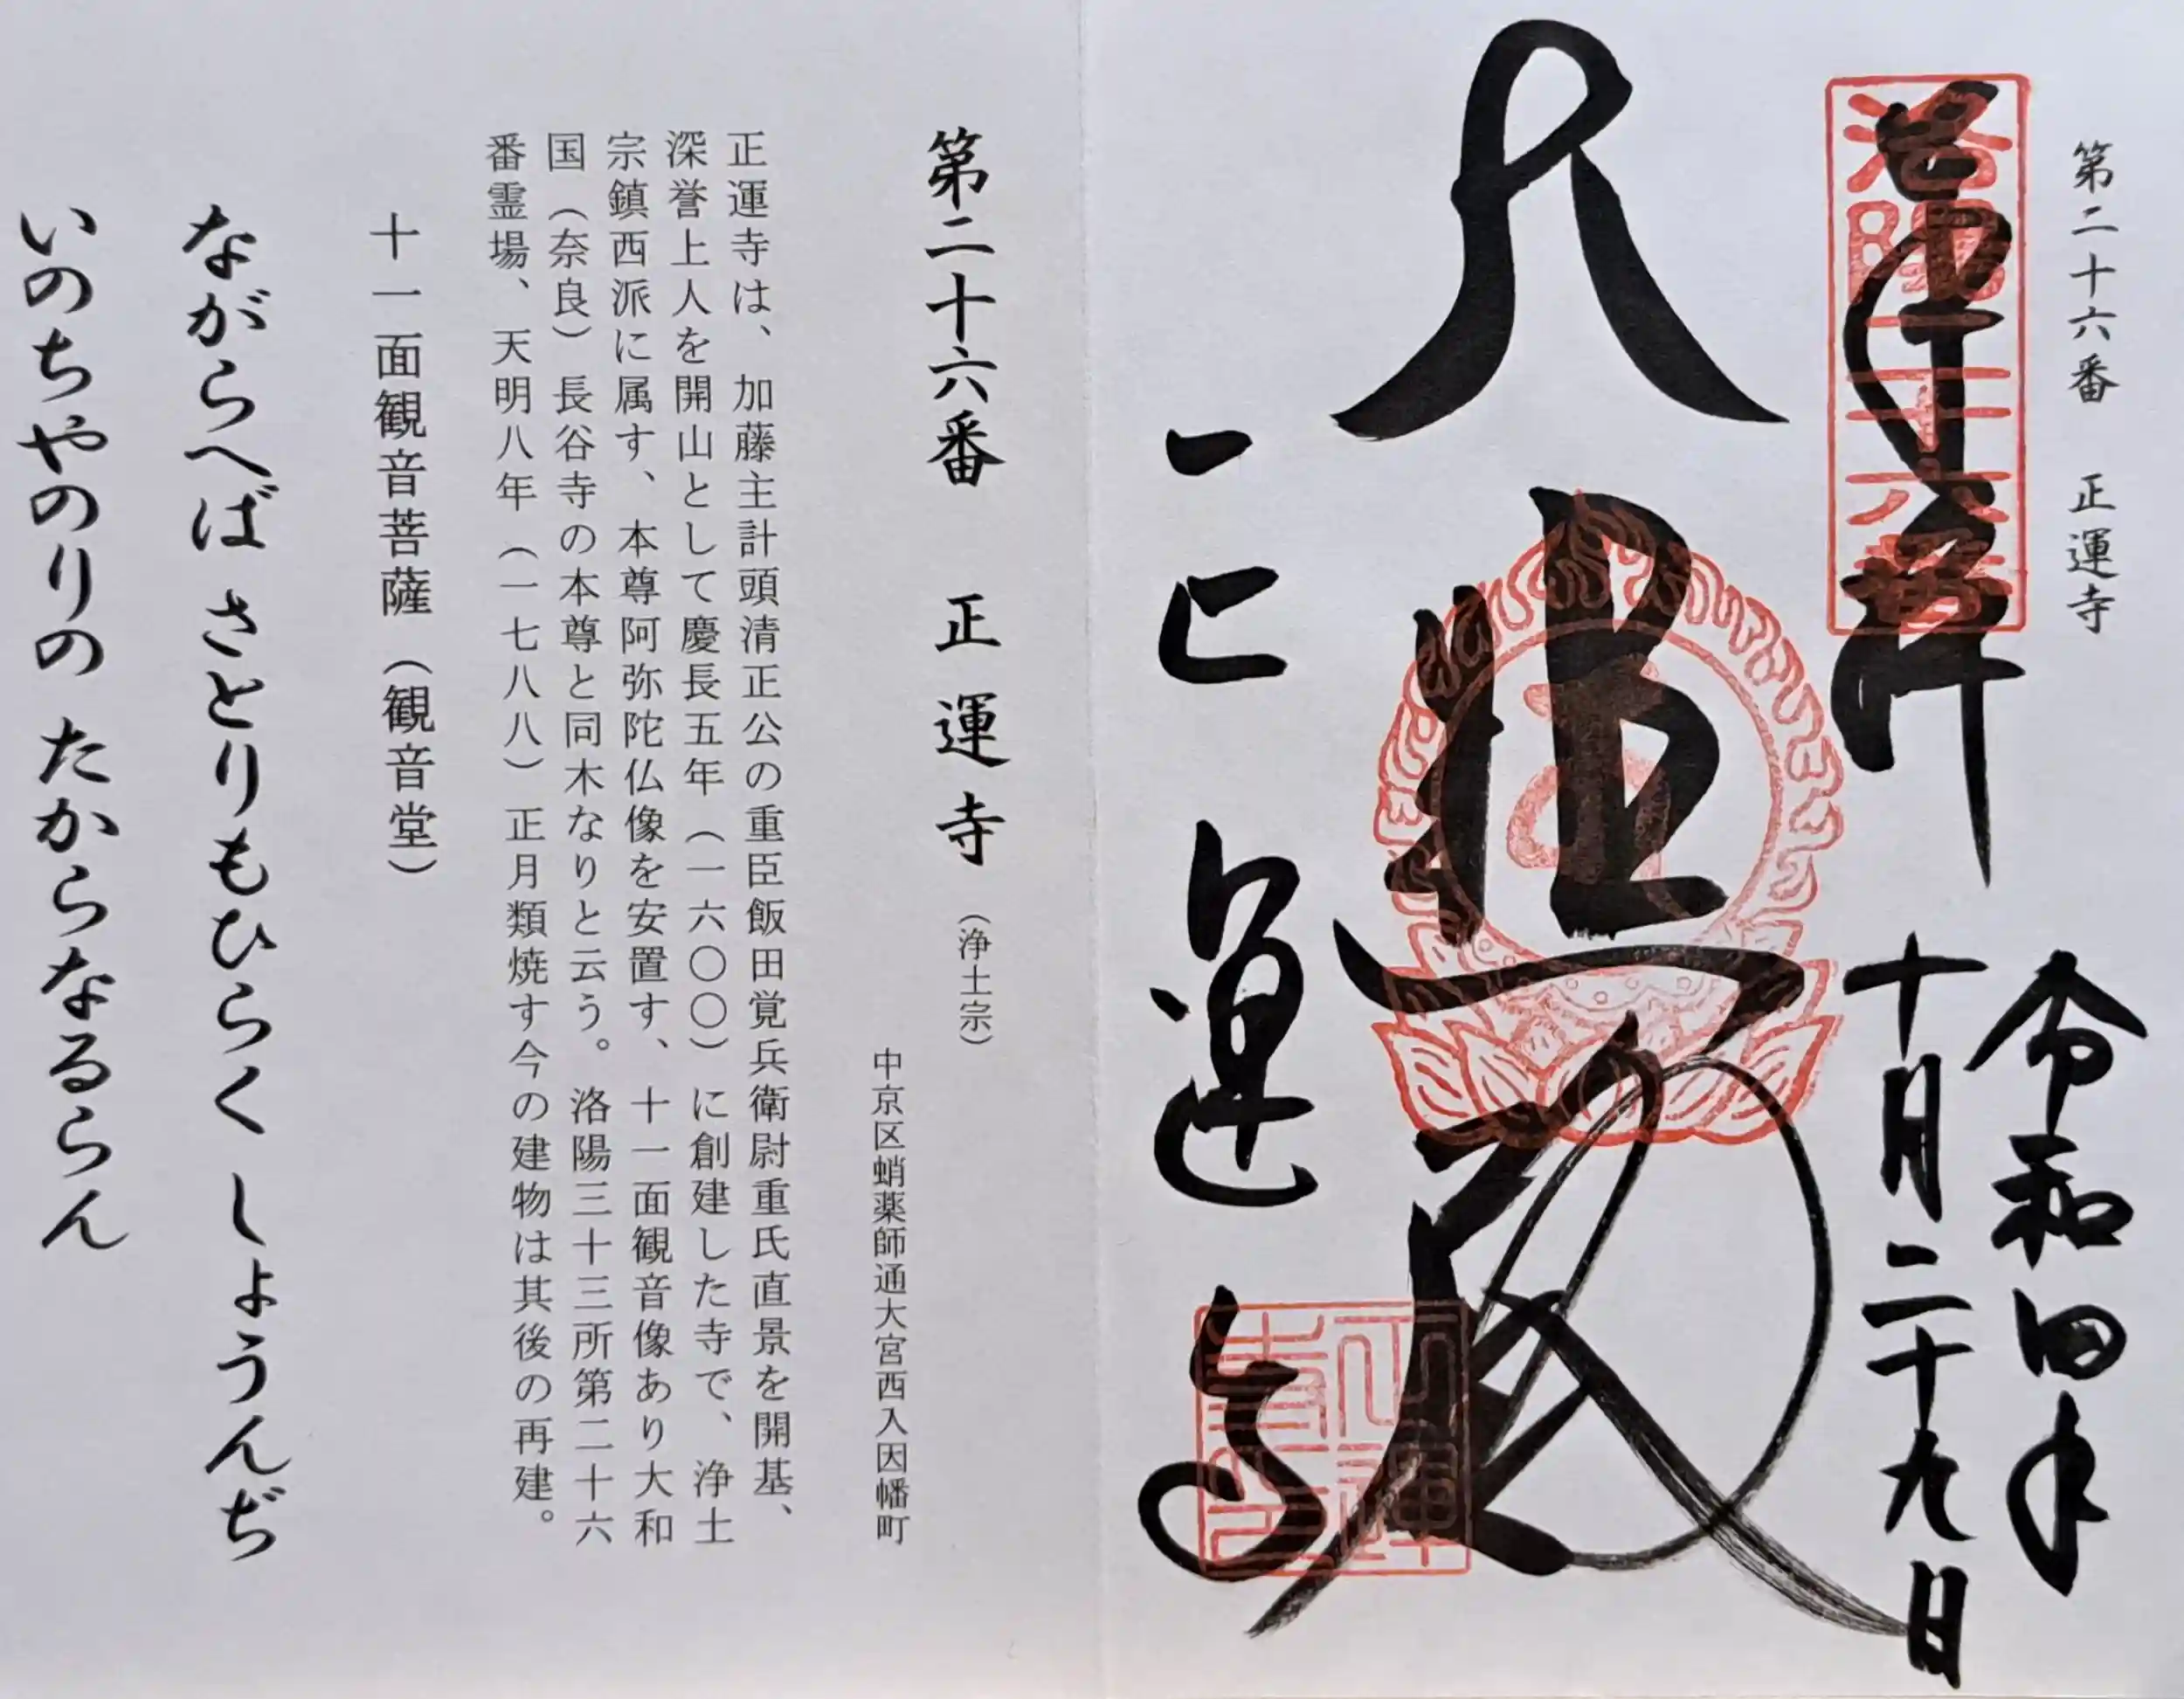 第二十六番 正運寺
洛陽二十六番
奉拝
令和四年
十月二十九日
大悲殿
正運寺
第二十六番 正運寺（浄土宗）
中京区蛸薬師通大宮西入因幡町
正運寺は、加藤主計頭清正公の重臣飯田覚兵衛尉重氏直景を開基、
深誉上人を開山として慶長五年（一六〇〇）に創建した寺で、浄土
宗鎮西派に属す、本尊阿弥陀仏像を安置す、十一面観音像あり大和
国（奈良）長谷寺の本尊と同木なりと云う。洛陽三十三所第二十六
番霊場、天明八年（一七八八）正月類焼す今の建物は其後の再建。
十一面観音菩薩（観音堂）
ながらへば さとりもひらく しょううんぢ
いのちやのりの たからなるらん